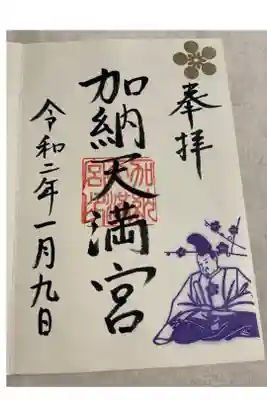 奉拝
加納天満宮
令和二年一月九日